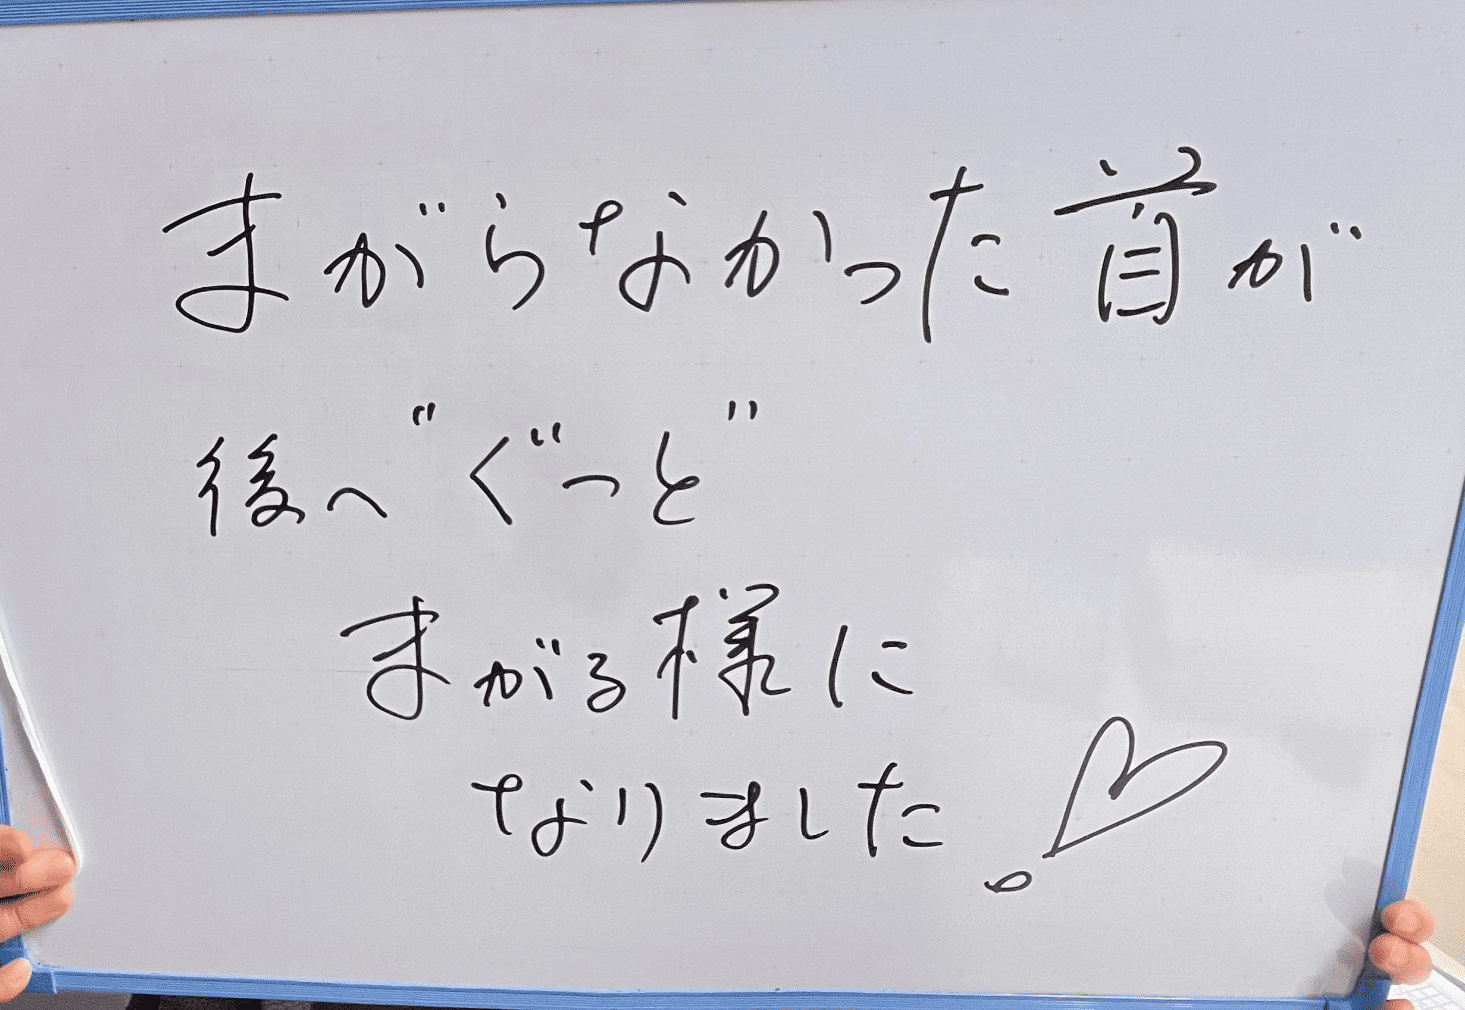 まがらなかった首が
後へ"ぐっと"
まがる様に
なりました